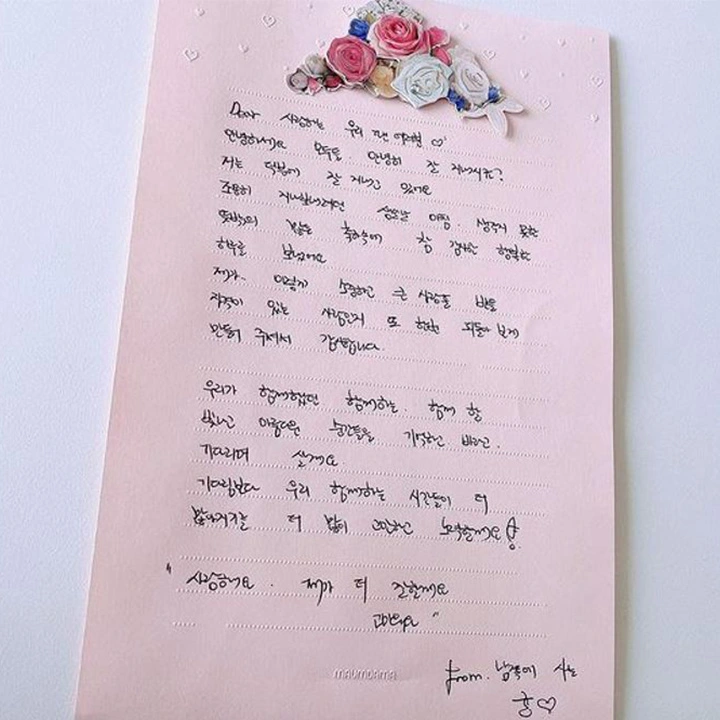 Dear 사랑하는 우리 팬 여러분 ♡
안녕하세요 모두들. 안녕히 잘 지내시죠?
저는 덕분에 잘 지내고 있어요
조용히 지나가려던 생일날 아침. 생각지 못한
뜻밖의 많은 축하속에 참 감사한 행복한
하루를 보냈어요
제가. 이렇게 소중하고 큰 사랑을 받을
자격이 있는 사람인지 또 한번 되돌아 보게
만들어 주셔서 감사합니다.
우리가 함께했던 함께하는. 함께 할
빛나고 아름다운 순간들을 기억하고 바라고.
기다리며 살게요.
기다림보다 우리 함께하는 시간들이 더
많아지기를 더 많이 고민하고 노력할게요
" 사랑해요. 제가 더 잘할게요
고마워요 "
from. 남쪽에 사는
홍♡
MAUMDAMA